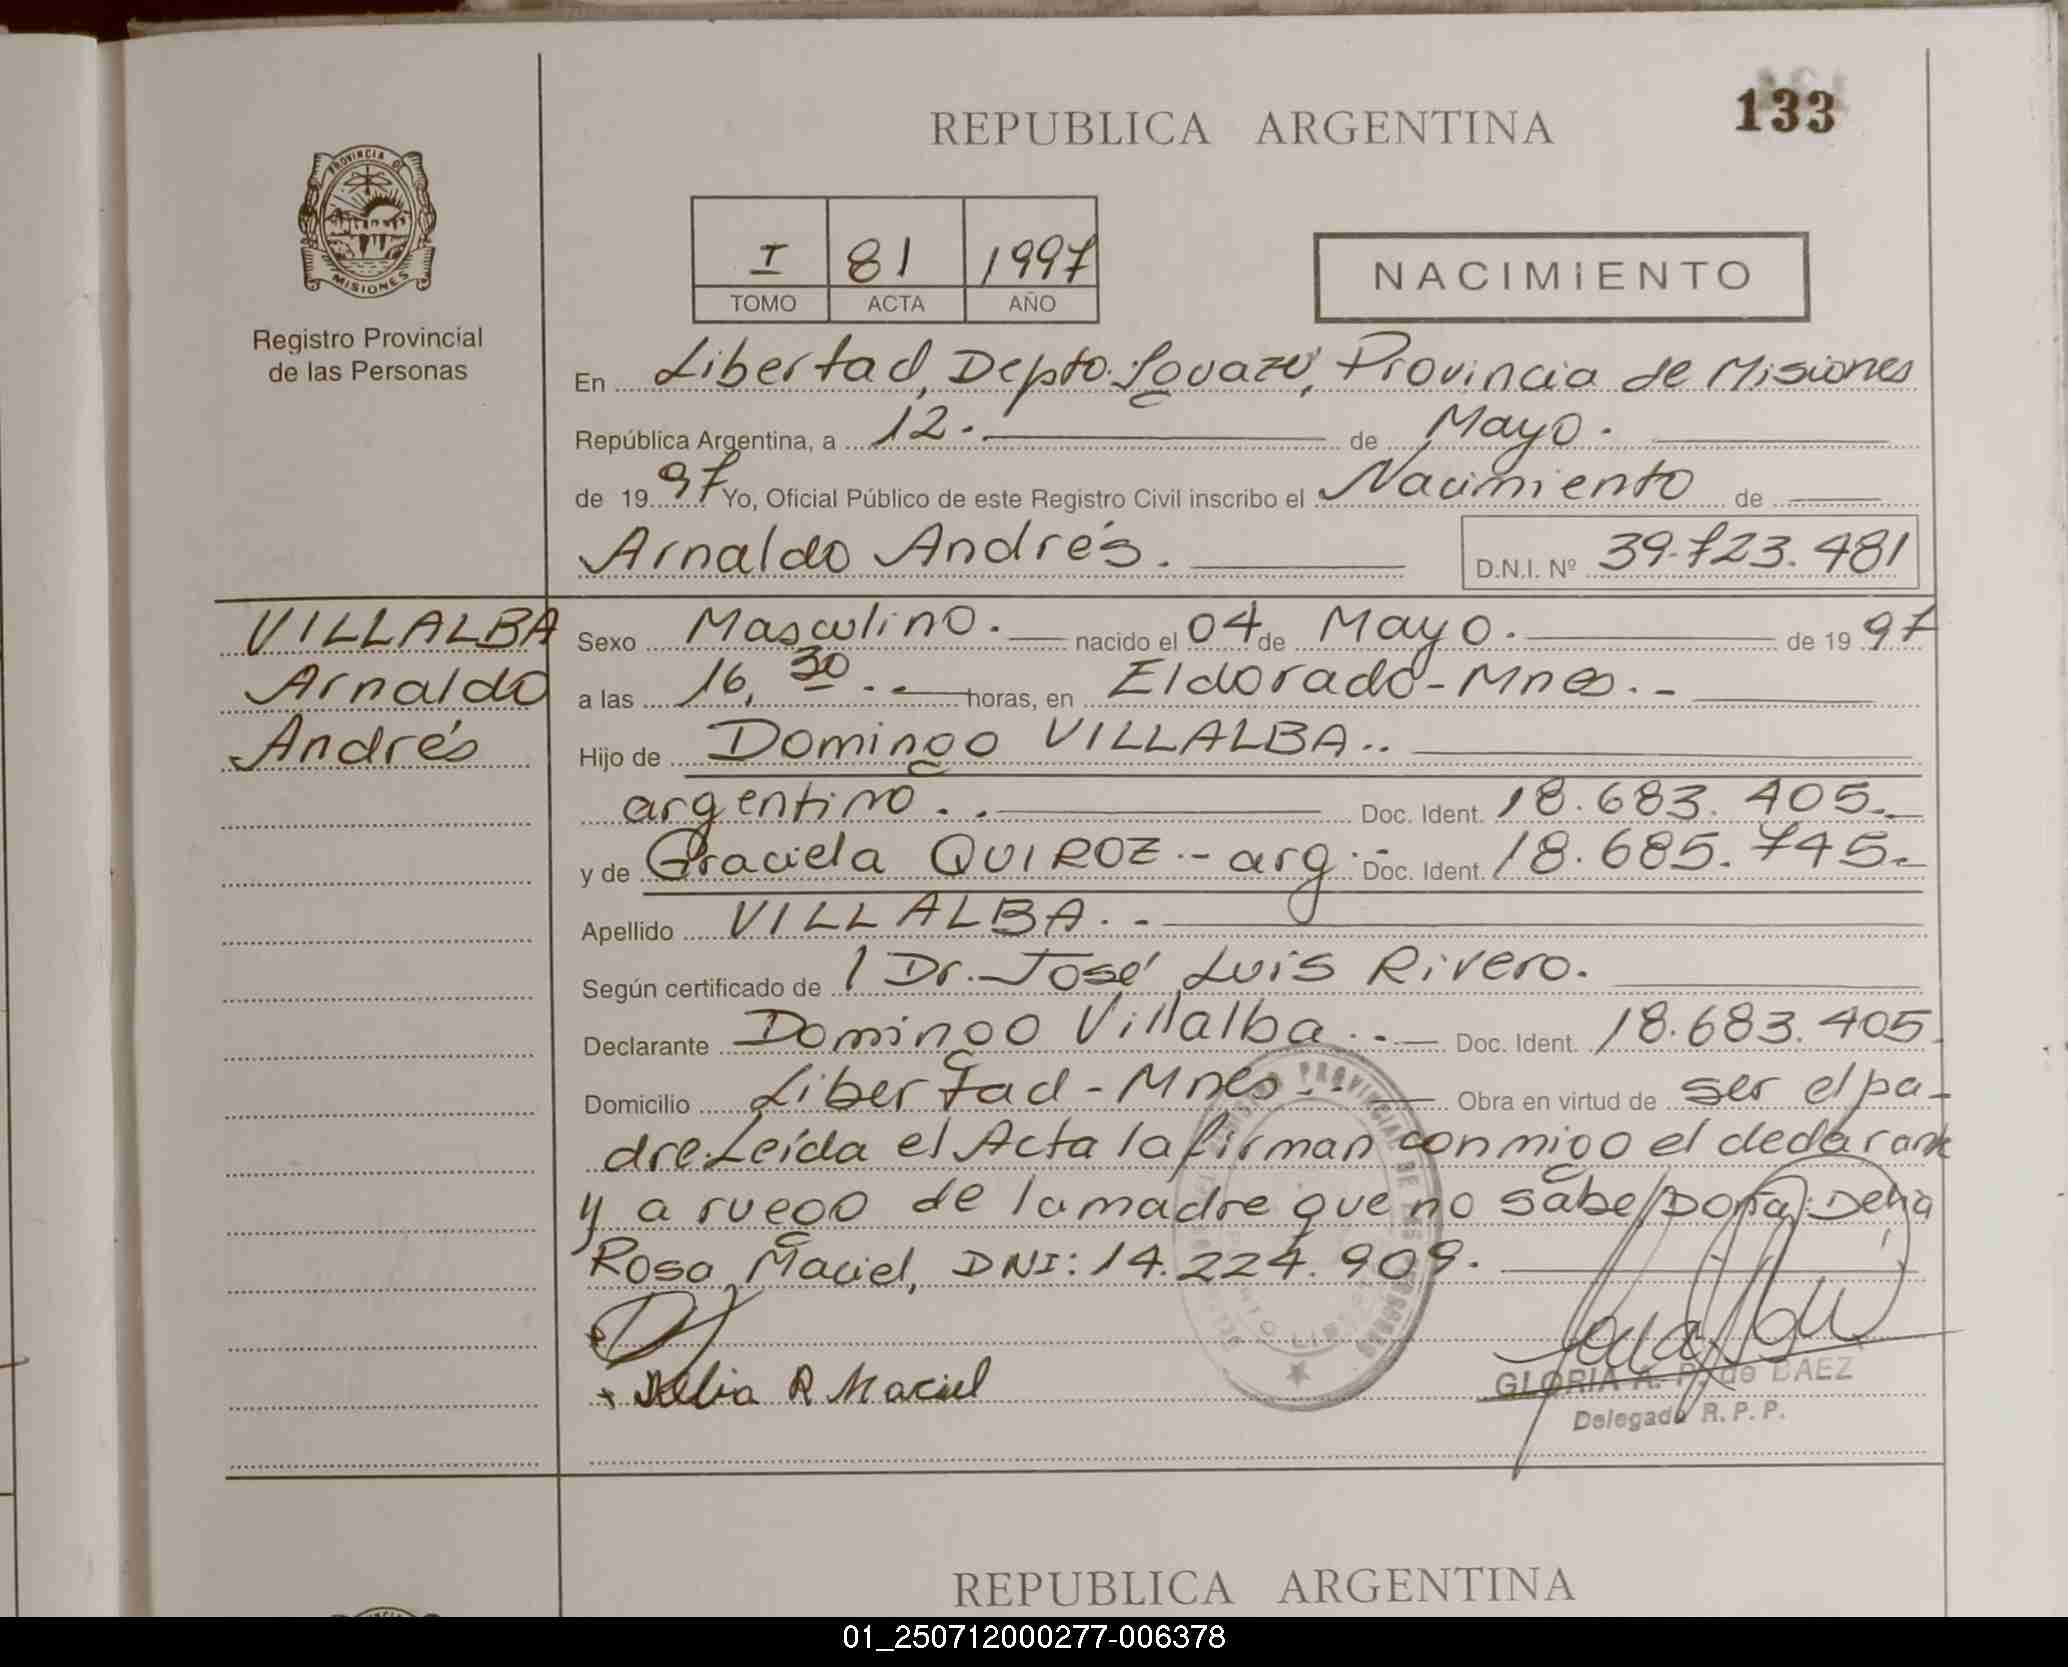 133
REPUBLICA ARGENTINA
PROVINCIA DE
MISIONES
Registro Provincial
de las Personas
I 81 1997
TOMO ACTA AÑO
NACIMIENTO
En Libertad, Depto. Iguazú, Provincia de Misiones
República Argentina, a 12.- de Mayo.
de 1997 Yo, Oficial Público de este Registro Civil inscribo el Nacimiento de
Arnaldo Andrés. D.N.I. Nº 39.723.481
VILLALBA
Arnaldo
Andrés
Sexo Masculino. nacido el 04 de Mayo. de 1997
a las 16,30.- horas, en Eldorado-Mnes.-
Hijo de Domingo VILLALBA..
argentino.. Doc. Ident. 18.683.405.-
y de Graciela QUIROZ.- arg.- Doc. Ident. 18.685.745.-
Apellido VILLALBA.-
Según certificado de / Dr. José Luis Rivero.
Declarante Domingo Villalba.- Doc. Ident. 18.683.405
Domicilio Libertad-Mnes.- Obra en virtud de ser el pa-
dre. Leída el Acta la firman conmigo el declarante
y a ruego de la madre que no sabe, Doña Delia
Rosa Maciel, DNI: 14.224.909.
Delia R Maciel
GLORIA A. P. de BAEZ
Delegada R. P. P.
REPUBLICA ARGENTINA
01_250712000277-006378